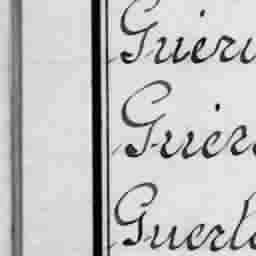 Guéri
Guér
Guerl